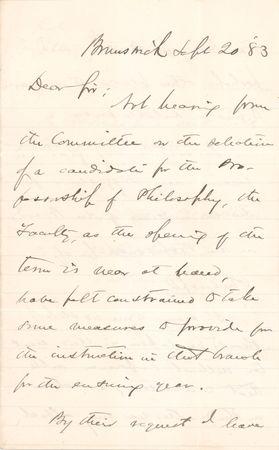 Brunswick Sept 20 '83
Dear Sir:
Not hearing from
the Committee on the selection
of a candidate for the Pro-
fessorship of Philosophy, the
Faculty, as the opening of the
term is near at hand,
have felt constrained to take
some measures to provide for
the instruction in that branch
for the ensuing year.
By their request I have